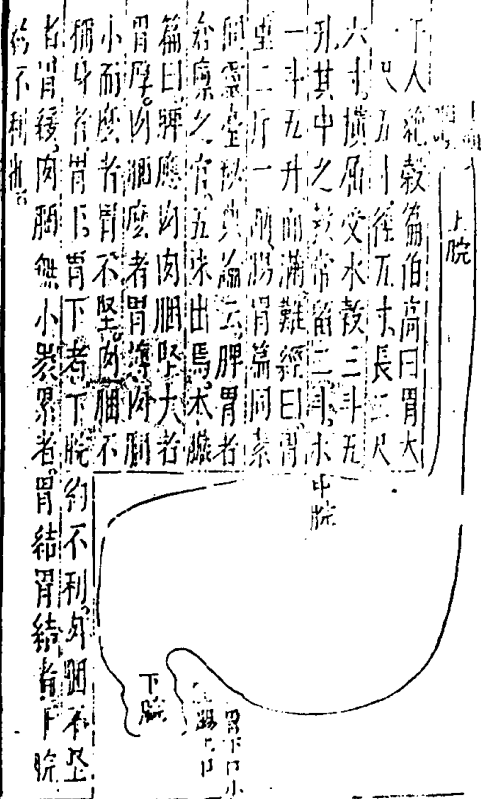 上脘
平人絕穀篇伯高曰胃大
一尺五寸徑五寸長二尺
六寸橫屈受水穀三斗五
升其中之穀常留二斗水
一斗五升而滿難經曰胃
重二斤一兩腸胃篇同素
問靈臺秘典論云脾胃者
倉廩之官五味出焉本臟
篇曰脾應肉肉䐃堅大者
胃厚肉䐃麼者胃薄肉䐃
小而麼者胃不堅肉䐃不
稱身者胃下胃下者下脘約不利肉䐃不堅
者胃緩肉䐃無小裹累者胃結胃結者下脘
約不利也
中脘
胃下口小
腸上口
下脘